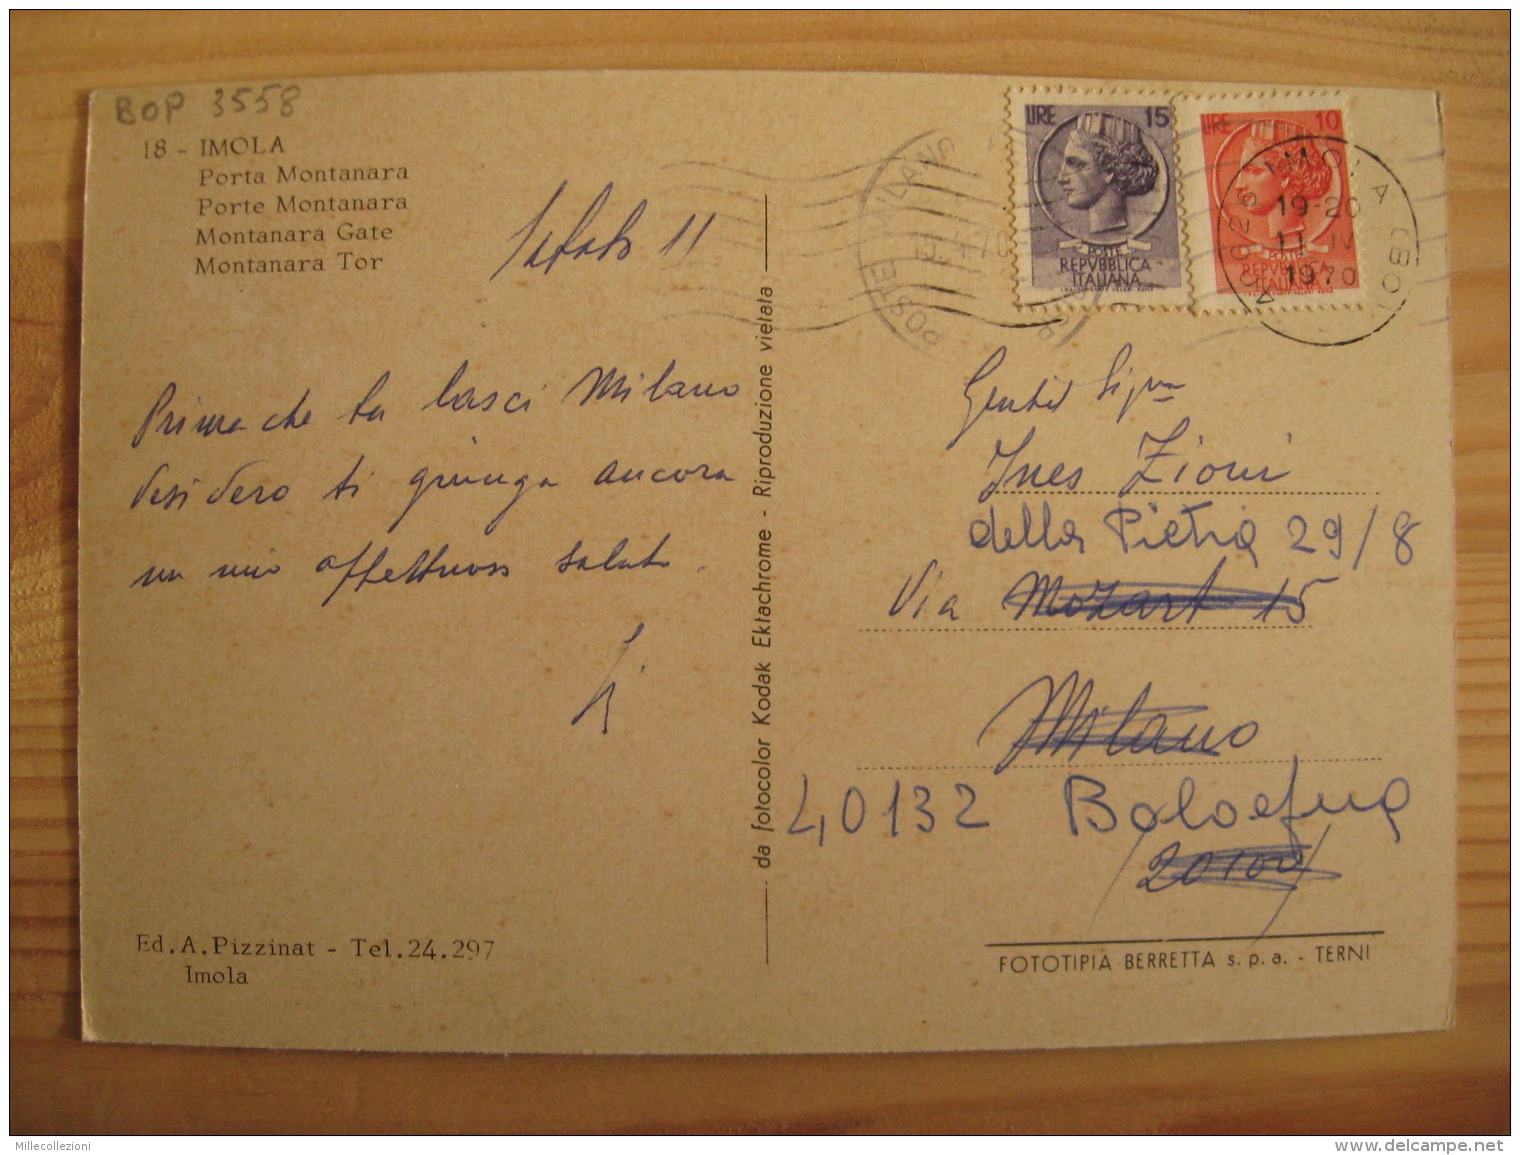 BOP 3558
18 - IMOLA
Porta Montanara
Porte Montanara
Montanara Gate
Montanara Tor
Sabato 11
Prima che tu lasci Milano
desidero ti giunga ancora
un mio affettuoso saluto.
Ed. A. Pizzinat - Tel. 24.297
Imola
da fotocolor Kodak Ektachrome - Riproduzione vietata
LIRE 15
POSTE
REPVBBLICA
ITALIANA
LIRE 10
REPVBBLICA
ITALIANA
POSTE MILANO
15.4.70
40026 IMOLA (BO)
19-20
11 IV
1970
Gentil Sig.na
Ines Zioni
della Pietra 29/8
Via Mozart 15
Milano
40132 Bologna
20100
FOTOTIPIA BERRETTA s.p.a. - TERNI
Millecollezioni
www.delcampe.net